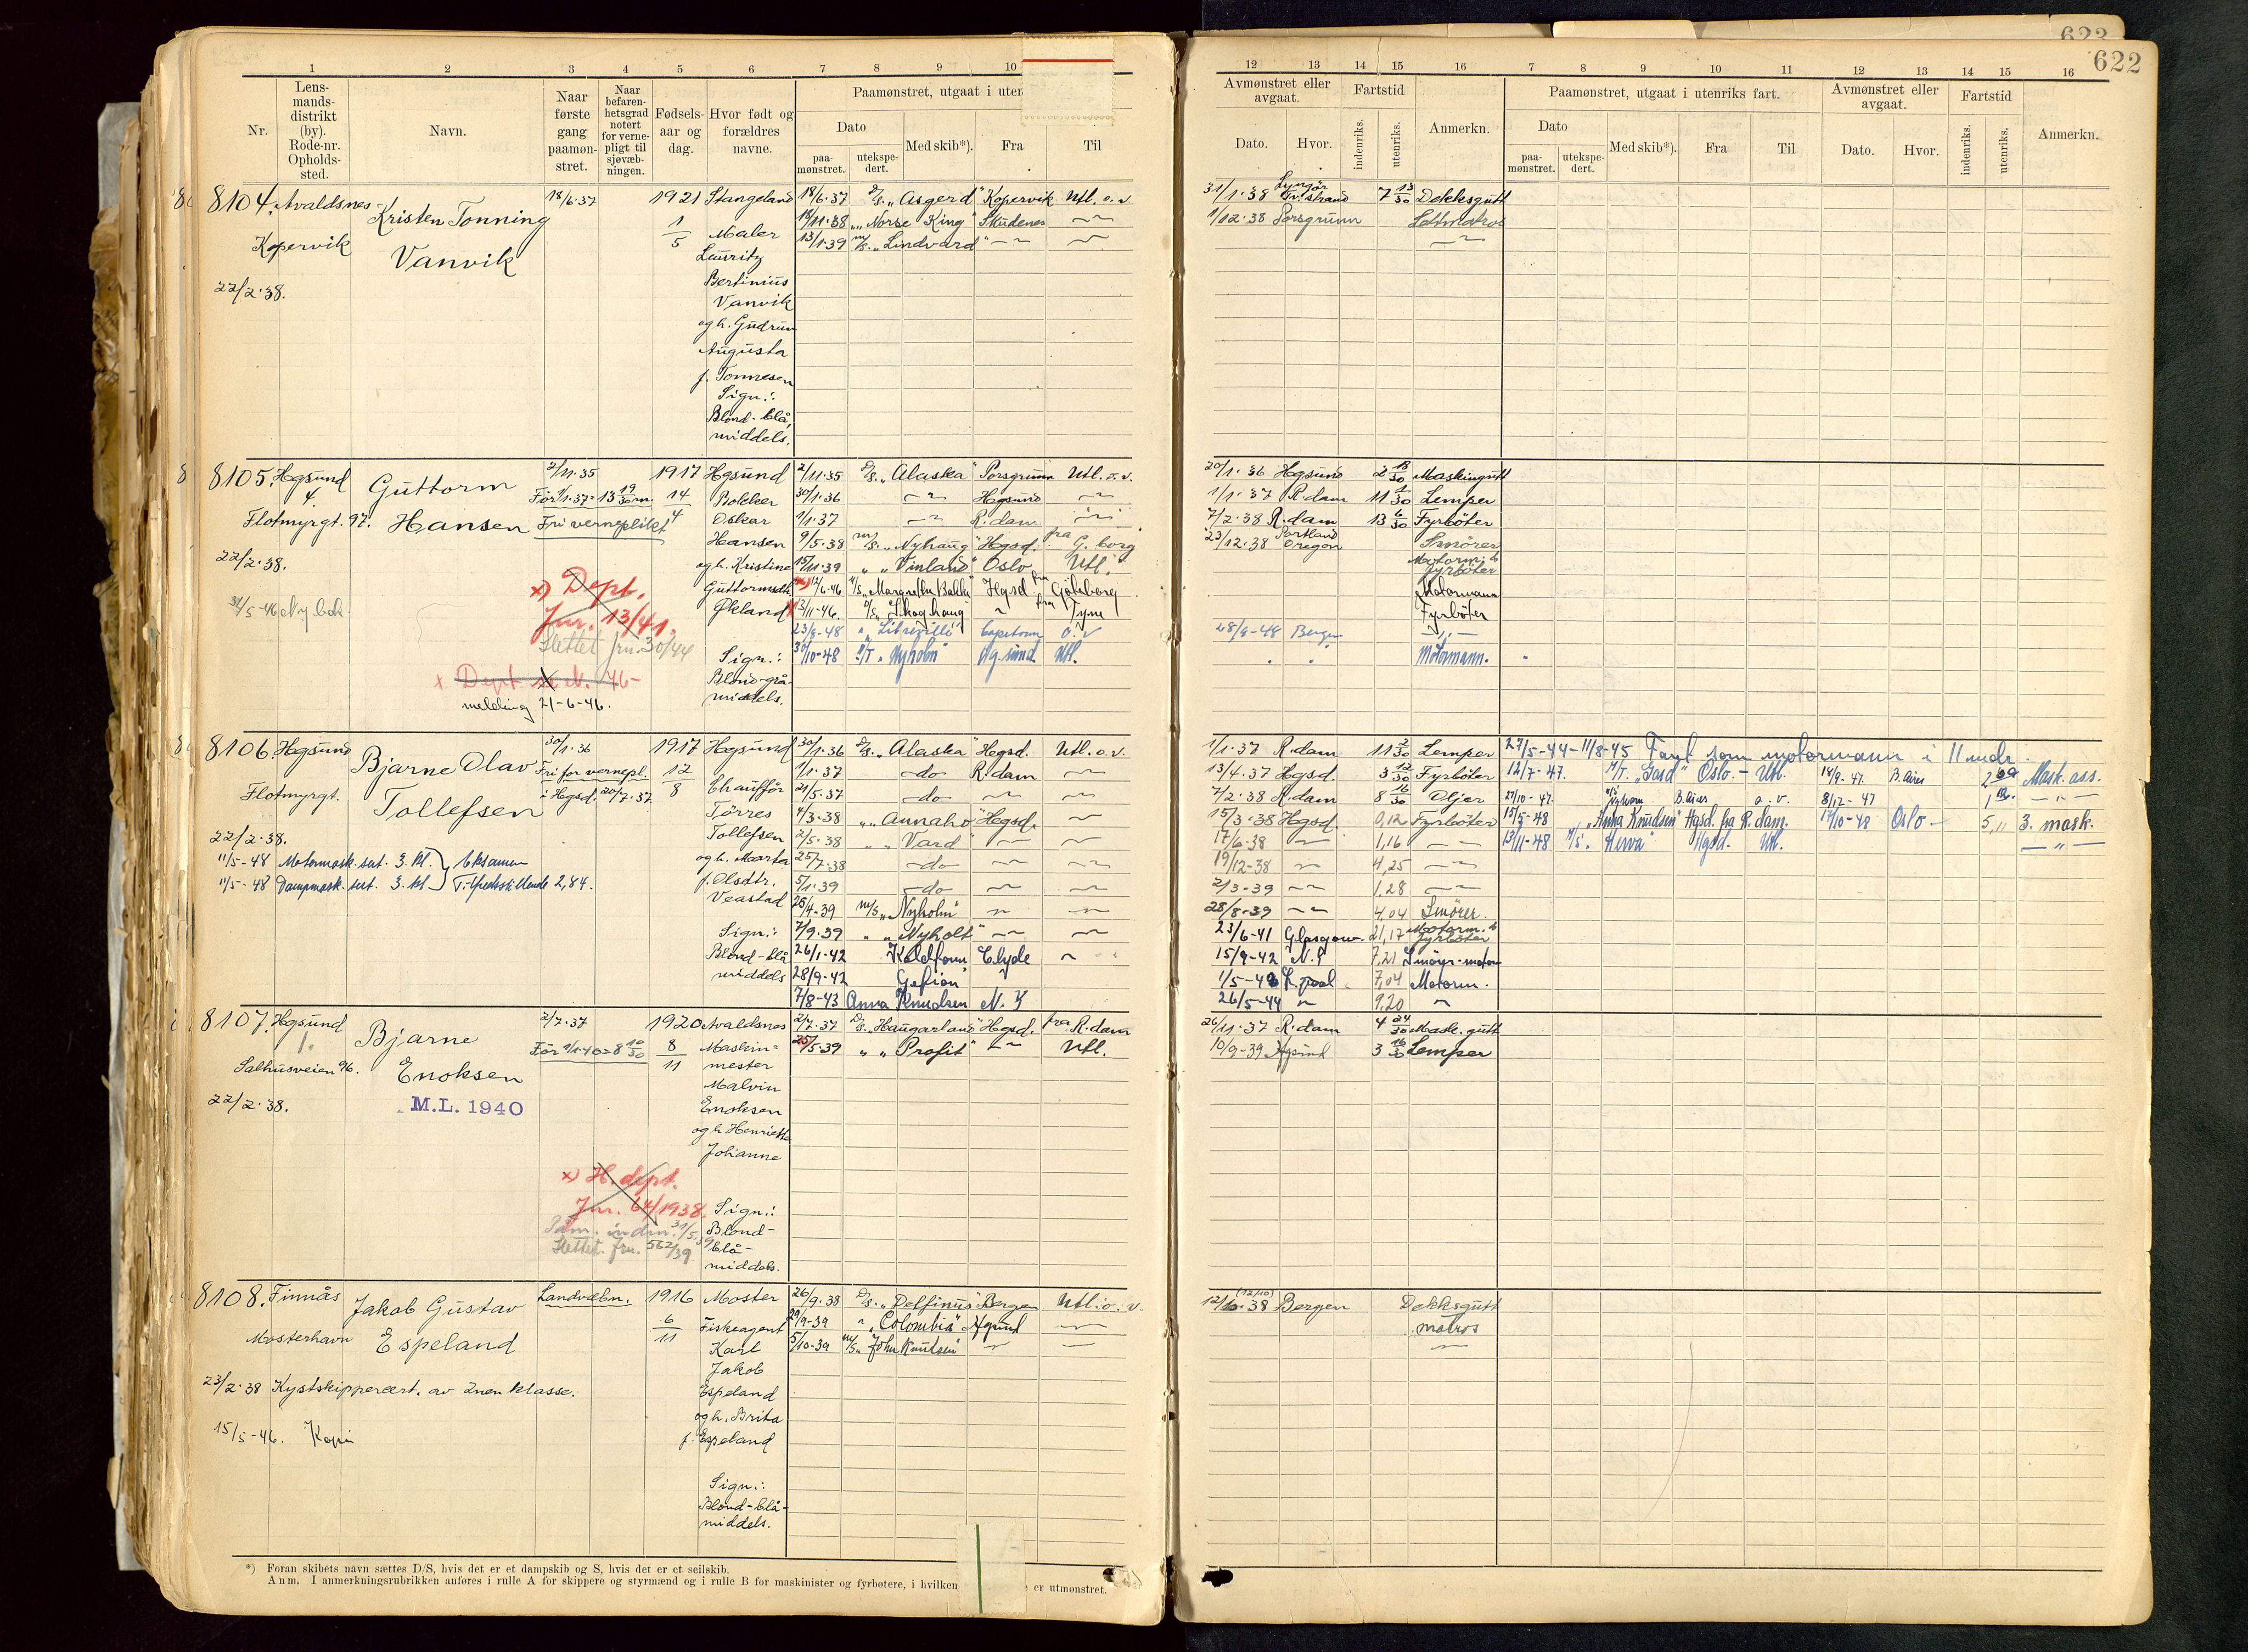 623
622
1 2 3 4 5 6 7 8 9 10
Nr.
Lens-
mands-
distrikt
(by).
Rode-nr.
Opholds-
sted.
Navn.
Naar
første
gang
paamøn-
stret.
Naar
befaren-
hetsgrad
notert
for verne-
pligt til
sjøvæb-
ningen.
Fødsels-
aar og
dag.
Hvor født og
forældres
navne.
Paamønstret, utgaat i uten
Dato
paa-
mønstret.
utekspe-
dert.
Med skib*).
Fra
Til
12 13 14 15 16 7 8 9 10 11 12 13 14 15 16
Avmønstret eller
avgaat.
Dato. Hvor.
Fartstid
indenriks.
utenriks.
Anmerkn.
Paamønstret, utgaat i utenriks fart.
Dato
paa-
mønstret.
utekspe-
dert.
Med skib*). Fra Til
Avmønstret eller
avgaat.
Dato. Hvor.
Fartstid
indenriks.
utenriks.
Anmerkn.
8104. Avaldsnes
Kopervik
22/2.38.
Kristen Tonning
Vanvik
18/6.37
1921
1
5
Stangeland
Maler
Lauritz
Bertinius
Vanvik
og h. Gudrun
Augusta
f. Tonnesen
Sign.:
Blond-blå,
middels.
18/6.37 D/S. "Asgerd" Kopervik Utl. o.v
18/11.38 "Norse King" Skudenes
13/1.39 M/S. "Lindvard"
31/1.38 Lyngør
Tv.strand 7 13/30 Dekksgutt
1/12.38 Porsgrunn Lettmatros
8105. Hgsund
4.
Flotmyrgt. 97.
22/2.38.
Guttorm
Hansen
2/11.35
Før 1/1.37=13 19/30 m.
Fri verneplikt
1917
14
4
Hgsund
Bokker
Oskar
Hansen
og h. Kristine
Guttormsdtr.
Økland
Sign.:
Blond-grå-
middels.
x) Dept.
Jnr. 13/41.
Slettet jrn. 30/44
melding 21-6-46.
2/11.35 D/S. "Alaska" Porsgrunn Utl. o.v.
30/1.36 Hgsund
1/1.37 R.dam
9/5.38 M/S. "Nyhaug" Hgsd. fra G.borg
19/11.39 " "Vinland" Oslo Utl.
12/6.46 Hgsd fra Göteborg
13/11-46. "Skoghaug" fra Tyne
23/8-48 "Libreville" Capetown o.v
30/10-48 M/T "Nyholm" Hg.sund. Utl.
20/1.36 Hgsund 2 18/30 Maskingutt
1/1.37 R.dam 11 1/30 Lemper
7/2.38 R.dam 13 6/30 Fyrbøter
23/12.38 Portland
Oregon Smører
Motorm. &
Fyrbøter
Motormann
Fyrbøter
28/9-48 Bergen
Motormann.
8106. Hgsund
Flotmyrgt.
22/2.38.
Bjarne Olav
Tollefsen
30/1.36
Fri for vernepl.
i Hgsd. 20/7.37
1917
12
8
Hgsund
Chauffør
Tørres
Tollefsen
og h. Marta
f. Olsdtr.
Veastad
Sign.:
Blond-blå
middels
11/5-48 Motormask. sert. 3. kl. } Eksamen
11/5-48 Dampmask. sert. 3. kl } Tilfredsstillende 2,84.
30/1.36 D/S. "Alaska" Hgsd. Utl. o.v.
1/1.37 do R.dam
21/5.37 do
4/3.38 "Annaho" Hgsd.
2/5.38 " "Vard"
25/7.38 do
5/1.39 do
25/4.39 M/S. "Nyholm"
7/9.39 " "Nyholt"
26/1.42 Kaldfonn Clyde
28/9.42 Gefion
7/8-43 Anna Knudsen N.Y
1/1.37 R.dam 11 2/30 Lemper
13/4.37 Hgsd. 3 12/30 Fyrbøter
7/2.38 R.dam 8 16/30 Oljer
15/3.38 Hgsd. 0,12 Fyrbøter
17/6-38 1,16
19/12-38 4,25
2/3-39 1,28
28/8-39 4,04 Smører.
23/6-41 Glasgow 21,17 Motorm. &
Fyrbøter
15/9-42 N.Y 7,21 Smører-motor
1/5-43 L.pool 7,04 Motorm.
26/5-44 9,20
27/5-44-11/8-45 Fart som motormann i 11 mdr.
12/7-47. M/T. "Gard" Oslo - Utl. 18/9.47. B.Aires Mask. ass.
27/10-47. B.Aires o.v. 8/12-47
15/5-48 "Anna Knudsen" Hgsd. fra R.dam. 17/10-48 Oslo 5,11 3. mask.
13/11-48 M/S. Hgsd. Utl.
8107. Hgsund
1.
Salhusveien 96.
22/2.38.
Bjarne
Enoksen
M.L. 1940
2/7.37
Før 1/1.40=8 10/30
1920
8
11
Avaldsnes
Maskin=
mester
Malvin
Enoksen
og h. Henriette
Johanne
Sign.:
Blond-
blå-
middels.
x) H. dept.
Jnr. 64/1938.
Påm. inden. 31/5.39
Slettet. Jrn. 562/39
2/7.37 D/S. "Haugarland" Hgsd. fra R.dam
25/5.39 " "Profit" Utl.
26/11.37 R.dam 4 24/30 Mask. gutt
10/9-39 Hgsund 3 16/30 Lemper
8108. Finnås
Mosterhavn
23/2.38 Kystskippersert. av 2nen klasse.
15/5-46. Kopi
Jakob Gustav
Espeland
Landvæbn.
1916
6
11
Moster
Fiskeagent
Karl
Jakob
Espeland
og h. Brita
f. Espeland
Sign.:
Blond-blå-
middels.
26/9.38 D/S. "Delfinus" Bergen Utl. o. v.
29/9-39 "Colombia" Hgsund
5/10-39 M/S. "John Knudsen"
(12/10)
38 Bergen Dekksgutt
matros
*) Foran skibets navn sættes D/S, hvis det er et dampskib og S, hvis det er et seilskib.
Anm. I anmerkningsrubrikken anføres i rulle A for skippere og styrmænd og i rulle B for maskinister og fyrbøtere, i hvilken er utmønstret.